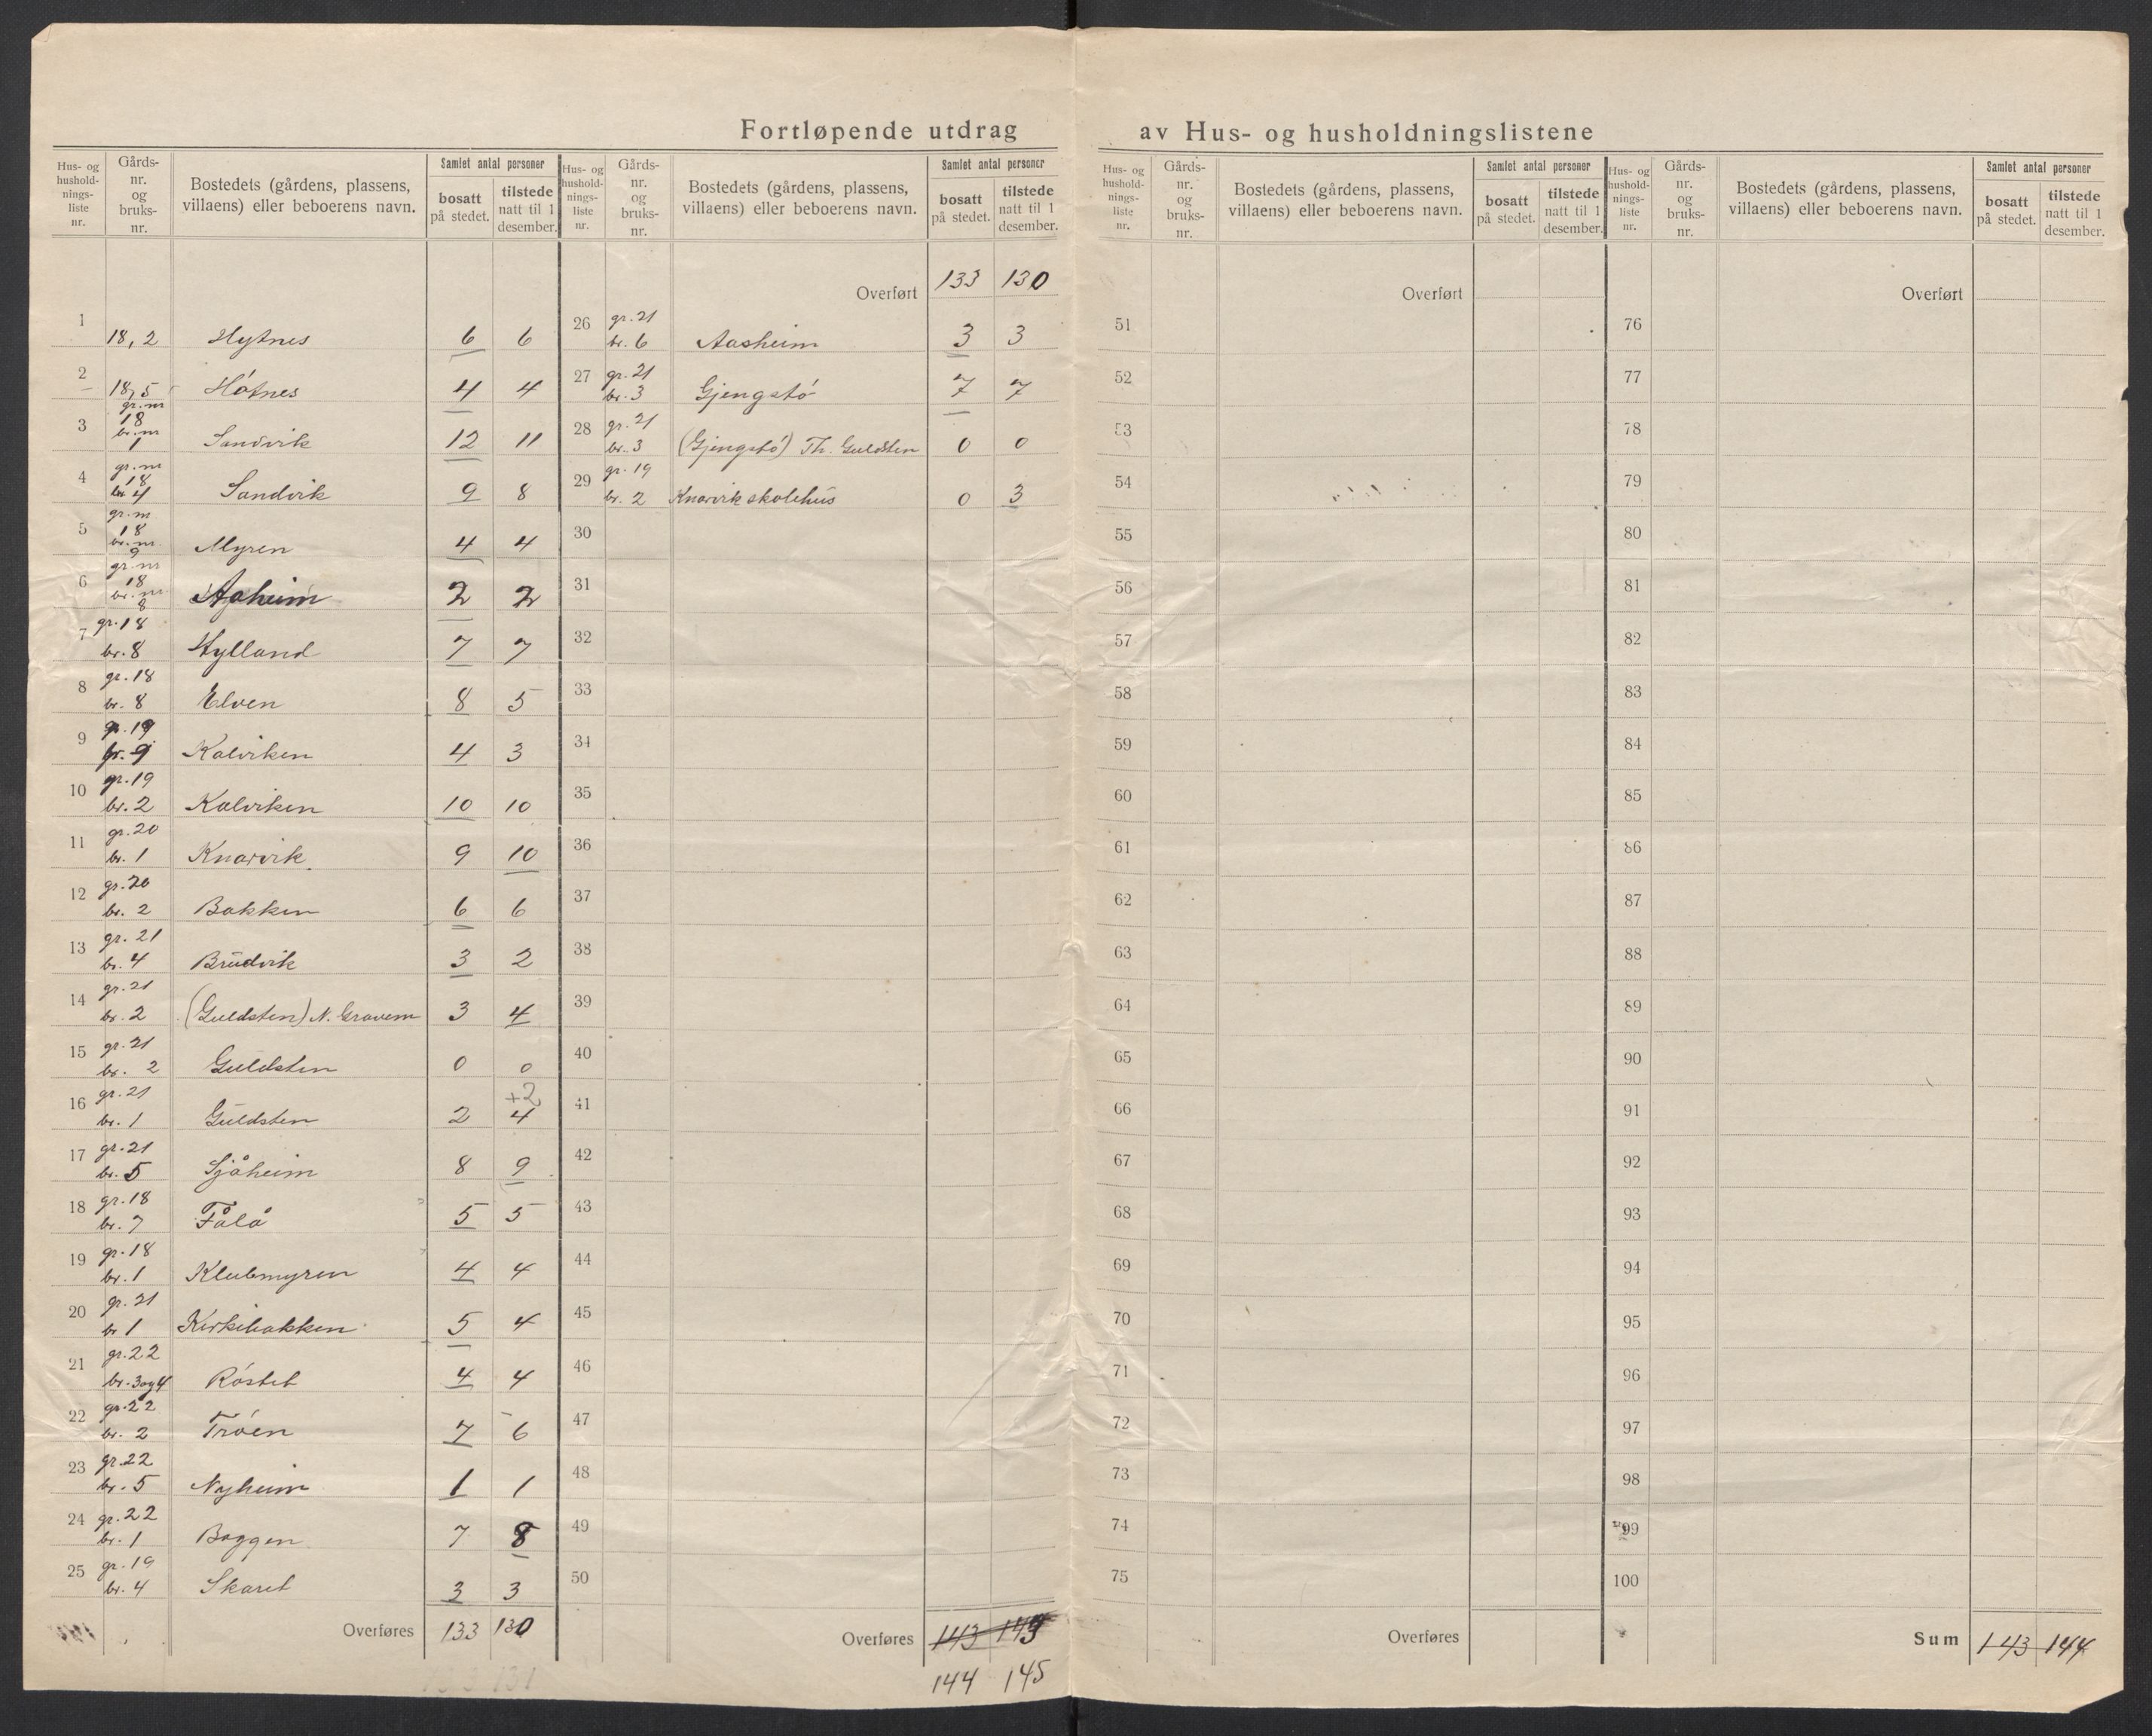 Fortløpende utdrag av Hus- og husholdningslistene
Hus- og husholdnings-liste nr. | Gårds-nr. og bruks-nr. | Bostedets (gårdens, plassens, villaens) eller beboerens navn. | Samlet antal personer | bosatt på stedet. | tilstede natt til 1 desember.
1 | 18, 2 | Hytnes | 6 | 6
2 | 18, 5 | Hótnes | 4 | 4
3 | gr.nr 18 br.nr 1 | Sandvik | 12 | 11
4 | gr.nr 18 br 4 | Sandvik | 9 | 8
5 | gr.nr 18 br.nr. 9 | Myren | 4 | 4
6 | gr.nr 18 br.nr. 8 | Aaheim | 2 | 2
7 | gr.18 br.8 | Hylland | 7 | 7
8 | gr.18 br. 8 | Elven | 8 | 5
9 | gr.19 br.9 | Kalviken | 4 | 3
10 | gr.19 br.2 | Kalviken | 10 | 10
11 | gr.20 br.1 | Knarvik | 9 | 10
12 | gr.20 br. 2 | Bakken | 6 | 6
13 | gr.21 br.4 | Brudvik | 3 | 2
14 | gr.21 br.2 | (Guldsten) N. Gravem | 3 | 4
15 | gr.21 br. 2 | Guldsten | 0 | 0
16 | gr.21 br.1 | Guldsten | 2 | +2 4
17 | gr.21 br.5 | Sjåheim | 8 | 9
18 | gr.18 br.7 | Fålå | 5 | 5
19 | gr.18 br.1 | Klubmyren | 4 | 4
20 | gr.21 br 1 | Kirkebakken | 5 | 4
21 | gr.22 br.3og4 | Róstet | 4 | 4
22 | gr.22 br. 2 | Tróen | 7 | 6
23 | gr.22 br.5 | Nyheim | 1 | 1
24 | gr.22 br.1 | Baggen | 7 | 8
25 | gr.19 br.4 | Skaret | 3 | 3
Overføres | 133 | 130
Hus- og husholdnings-liste nr. | Gårds-nr. og bruks-nr. | Bostedets (gårdens, plassens, villaens) eller beboerens navn. | Samlet antal personer | bosatt på stedet. | tilstede natt til 1 desember.
Overført | 133 | 130
26 | gr.21 br. 6 | Aasheim | 3 | 3
27 | gr.21 br.3 | Gjengstó | 7 | 7
28 | gr.21 br.3 | (Gjengstó) Th. Guldsten | 0 | 0
29 | gr.19 br. 2 | Knarvik skolehus | 0 | 3
30
31
32
33
34
35
36
37
38
39
40
41
42
43
44
45
46
47
48
49
50
Overføres | 143 | 143
144 | 145
Hus- og husholdnings-liste nr. | Gårds-nr. og bruks-nr. | Bostedets (gårdens, plassens, villaens) eller beboerens navn. | Samlet antal personer | bosatt på stedet. | tilstede natt til 1 desember.
Overført
51
52
53
54
55
56
57
58
59
60
61
62
63
64
65
66
67
68
69
70
71
72
73
74
75
Overføres
Hus- og husholdnings-liste nr. | Gårds-nr. og bruks-nr. | Bostedets (gårdens, plassens, villaens) eller beboerens navn. | Samlet antal personer | bosatt på stedet. | tilstede natt til 1 desember.
Overført
76
77
78
79
80
81
82
83
84
85
86
87
88
89
90
91
92
93
94
95
96
97
98
99
100
Sum | 143 | 144